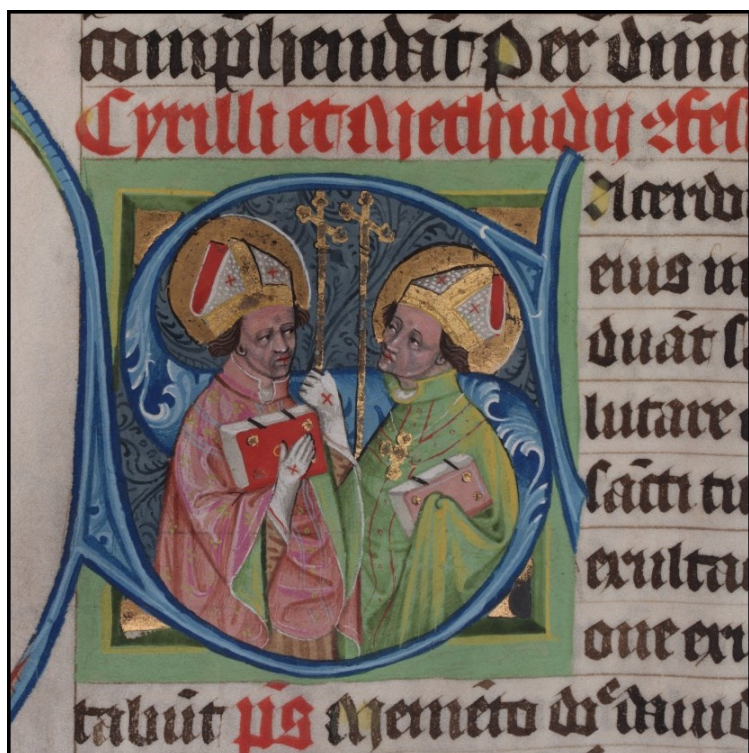 comp̲hendāt Per dn̄m
Cyrilli et Methudij ꝯfess
Sacerdo
eius in
duāt sa
lutare
sācti tu
exulta
one exu
tabūt p̄s Memēto dn̄e dauid